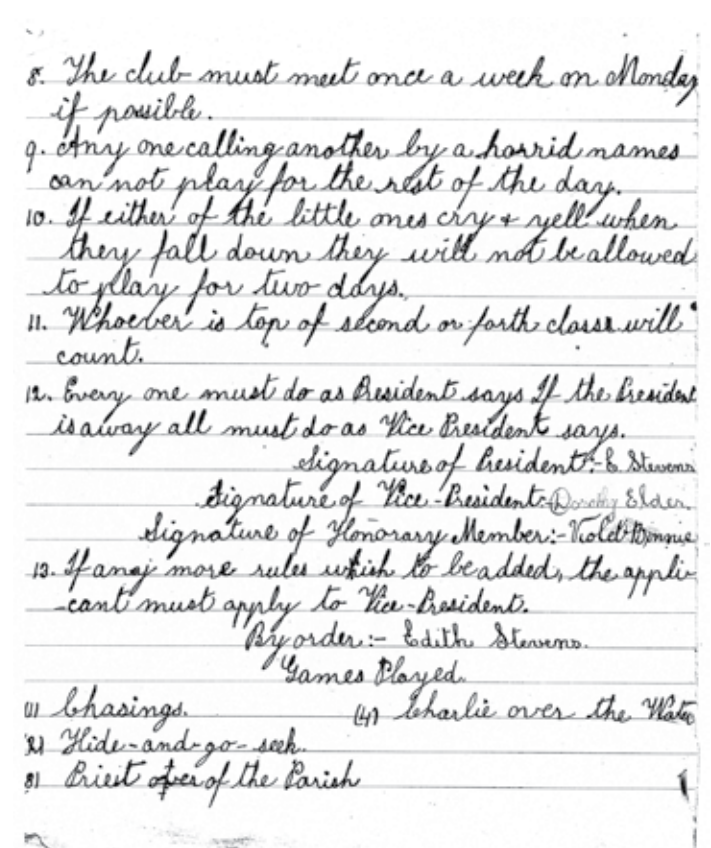 8. The club must meet once a week on Monday
if possible.
9. Any one calling another by a horrid names
can not play for the rest of the day.
10. If either of the little ones cry & yell when
they fall down they will not be allowed
to play for two days.
11. Whoever is top of second or forth class will
count.
12. Every one must do as President says If the President
is away all must do as Vice President says.
Signature of President:- E. Stevens
Signature of Vice-President:- Dorothy Elder.
Signature of Honorary Member:- Violet
13. If any more rules wish to be added, the appli-
-cant must apply to Vice-President.
By order:- Edith Stevens.
Games Played.
(1) Chasings. (4) Charlie over the Water
(2) Hide-and-go-seek.
(3) Priest of the Parish